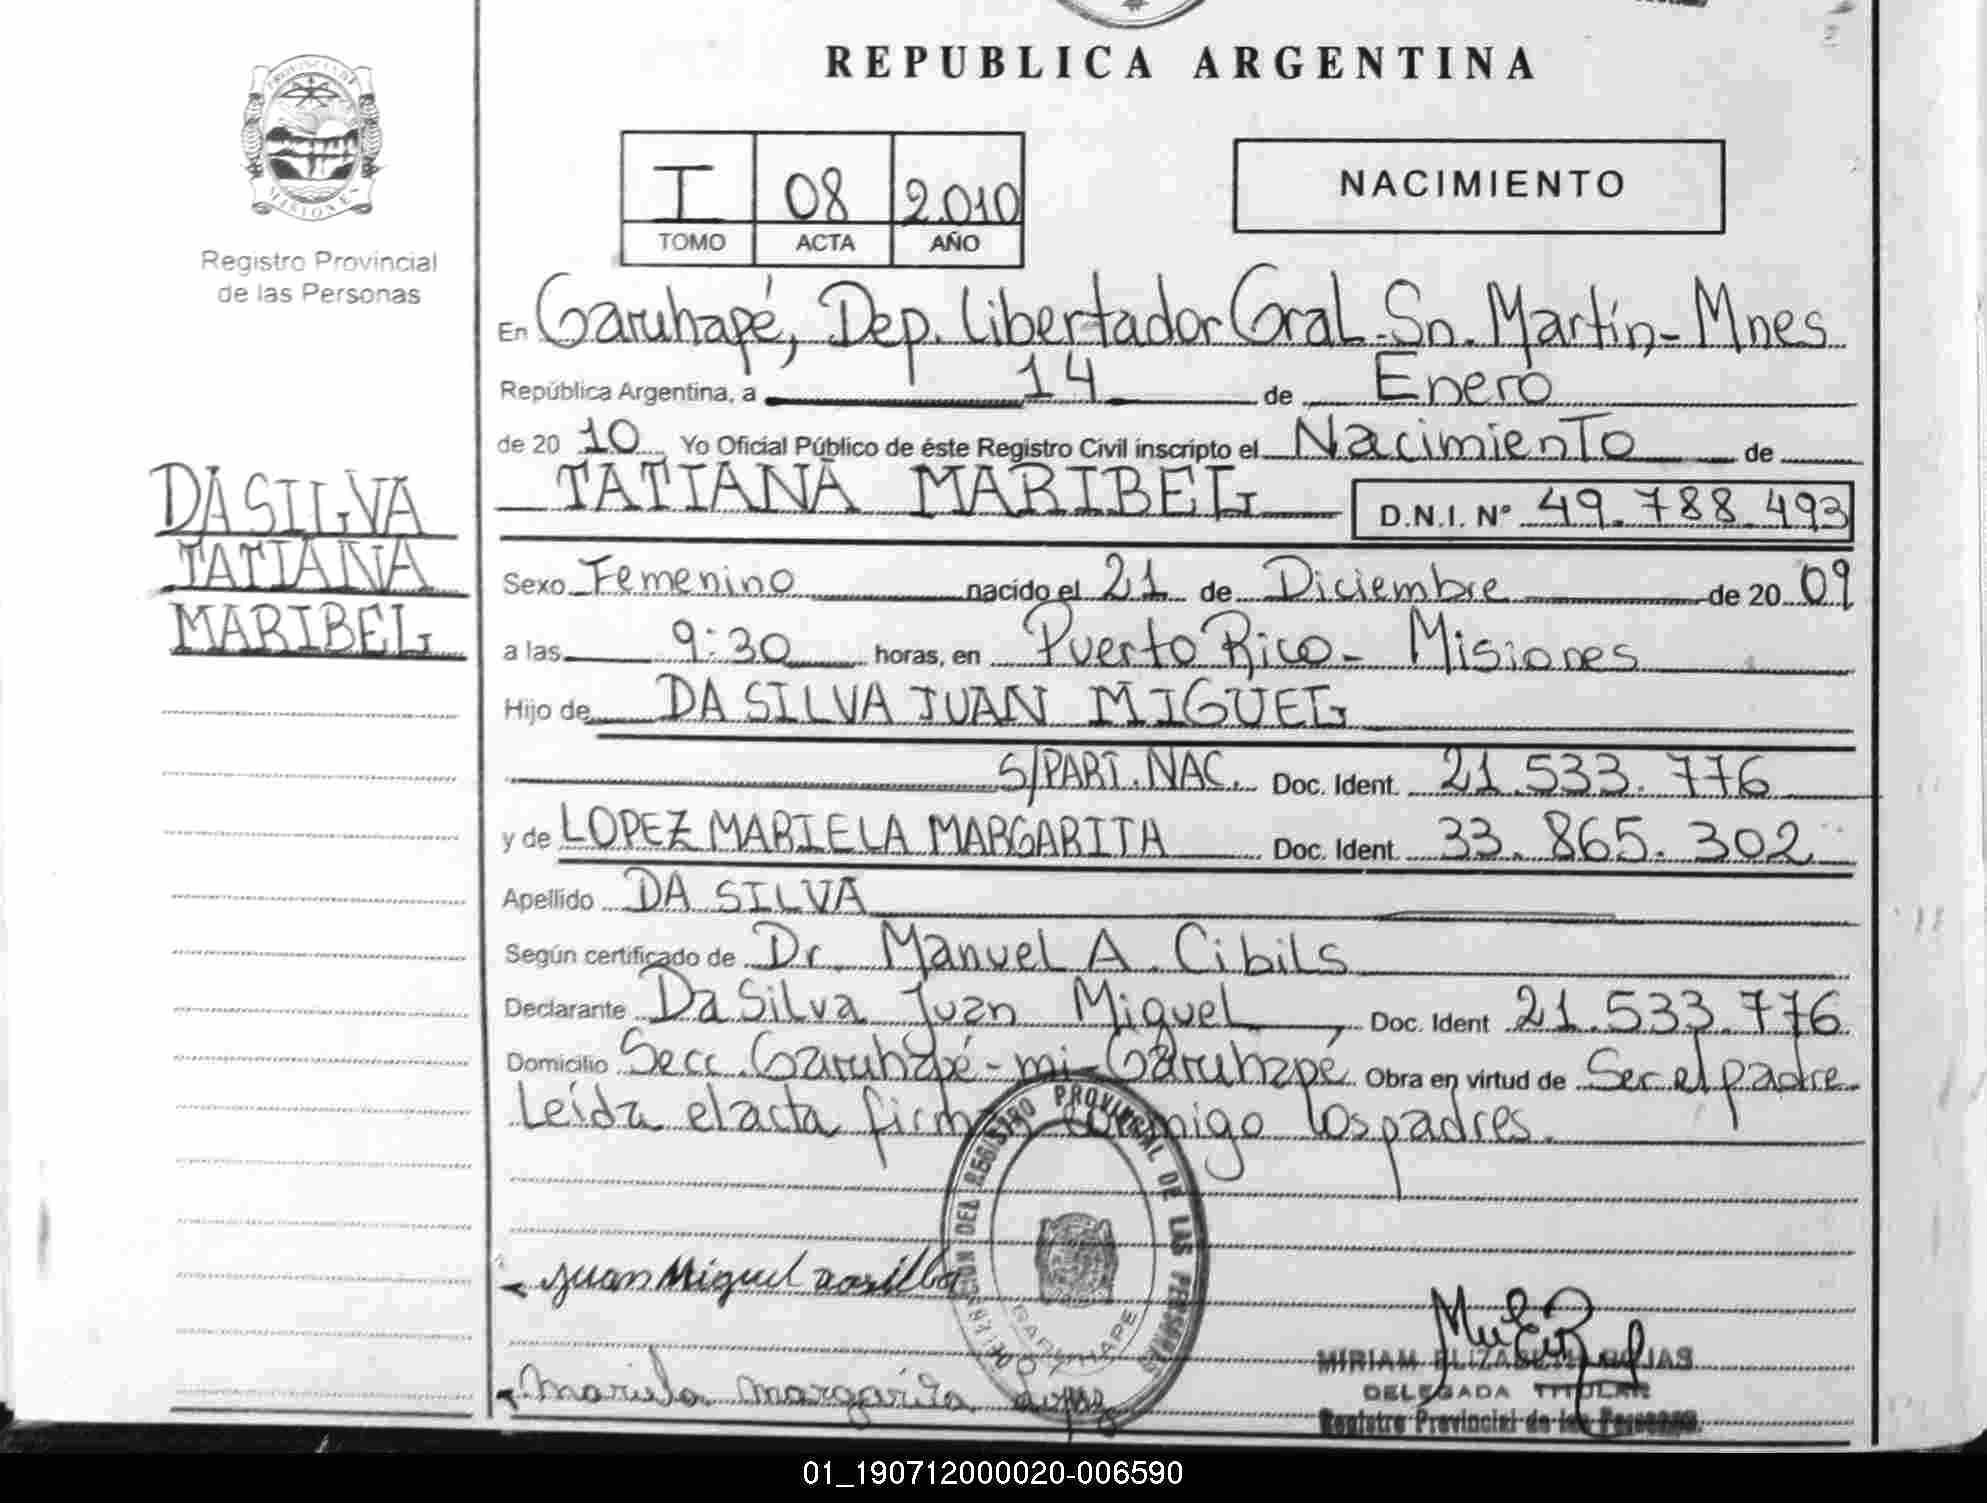 REPUBLICA ARGENTINA
PROVINCIA DE
MISIONES
Registro Provincial
de las Personas
I 08 2.010
TOMO ACTA AÑO
NACIMIENTO
En Garuhapé, Dep. Libertador Gral. Sn. Martín - Mnes
República Argentina, a 14 de Enero
de 20 10 Yo Oficial Público de éste Registro Civil inscripto el Nacimiento de
TATIANA MARIBEL D.N.I. N° 49.788.493
DA SILVA
TATIANA
MARIBEL
Sexo Femenino nacido el 21 de Diciembre de 20 09
a las 9:30 horas, en Puerto Rico - Misiones
Hijo de DA SILVA JUAN MIGUEL
S/PART. NAC. Doc. Ident. 21.533.776
y de LOPEZ MARIELA MARGARITA Doc. Ident. 33.865.302
Apellido DA SILVA
Según certificado de Dr. Manuel A. Cibils
Declarante Da Silva Juan Miguel, Doc. Ident 21.533.776
Domicilio Secc. Garuhapé-mi-Garuhapé Obra en virtud de Ser el padre
Leída el acta firman conmigo los padres.
DEL REGISTRO PROVINCIAL DE LAS PERSONAS
GARUHAPE
Juan Miguel dasilba
Mariela margarita Lopez
MIRIAM ELIZABETH ROJAS
DELEGADA TITULAR
Registro Provincial de las Personas
01_190712000020-006590